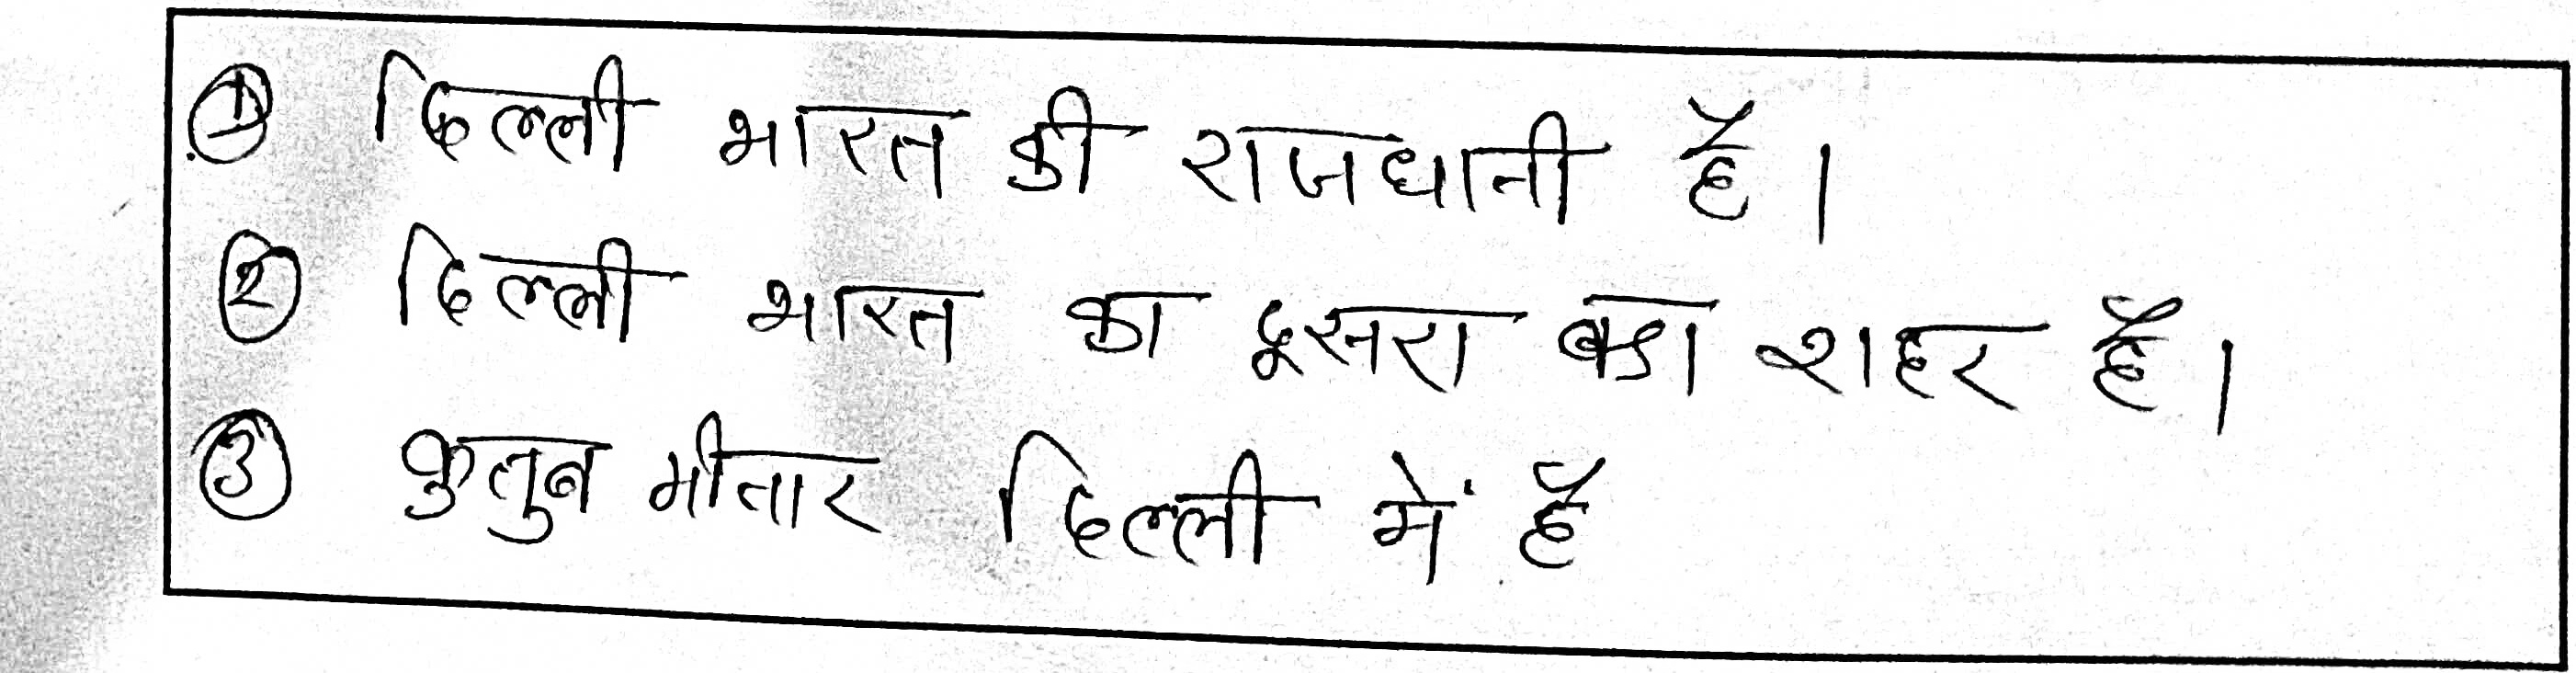 ① दिल्ली भारत की राजधानी है।
② दिल्ली भारत का दूसरा बडा शहर है।
③ कुतुब मीनार दिल्ली में है